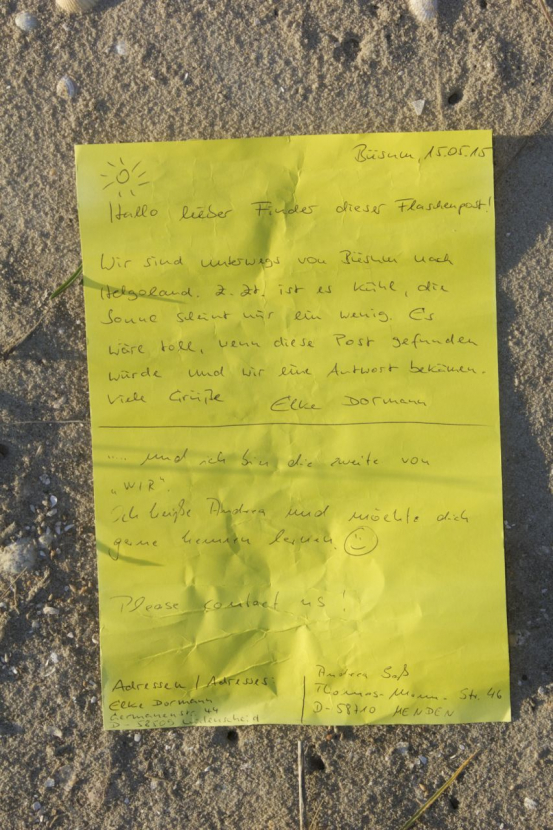 Büsum, 15.05.15
Hallo lieber Finder dieser Flaschenpost!
Wir sind unterwegs von Büsum nach
Helgoland. Z. Zt. ist es kühl, die
Sonne scheint nur ein wenig. Es
wäre toll, wenn diese Post gefunden
würde und wir eine Antwort bekämen.
Viele Grüße Elke Dormann
.... und ich bin die zweite von
„WIR".
Ich heiße Andrea und möchte dich
gerne kennen lernen.
Please contact us!
Adressen / Adresses
Elke Dormann
Germanenstr. 44
Andrea Saß
Thomas-Mann-Str. 46
D-58710 MENDEN